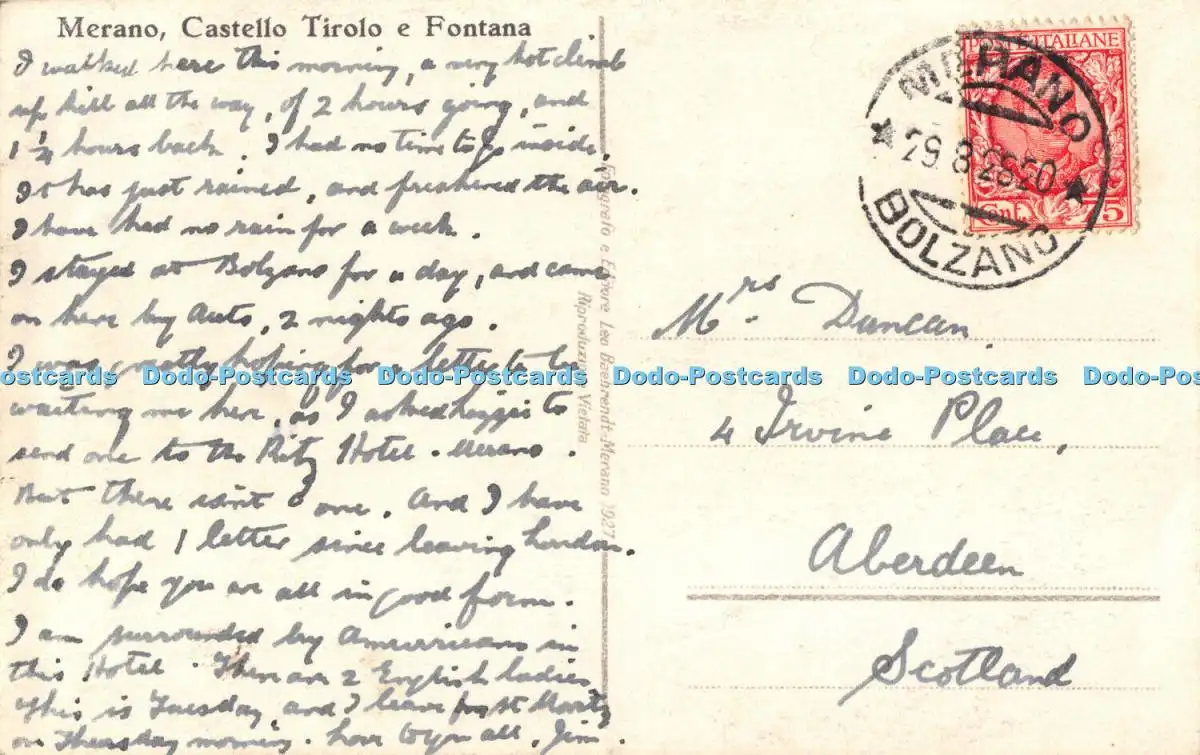 Merano, Castello Tirolo e Fontana
I walked here this morning, a very hot climb
up hill all the way, of 2 hours going, and
1 1/4 hours back. I had no time to go inside.
It has just rained, and freshened the air.
I have had no rain for a week.
I stayed at Bolzano for a day, and came
on here by Auto, 2 nights ago.
I was greatly hoping for a letter to be
waiting me here, as I asked to
send one to the Ritz Hotel. Merano.
But there isn't one. And I have
only had 1 letter since leaving London.
I do hope you are all in good form.
I am surrounded by Amerricans in
this Hotel. There are 2 English ladies
This is Tuesday, and I leave for St Moritz
on Thursday morning. Love to you all, Jim.
Fotografo e Editore Leo Baehrendt-Merano 1927
Riproduzione Vietata
POSTE ITALIANE
Cent. 75
MERANO
29.8.28.20
BOLZANO
Mrs. Duncan,
4 Irvine Place,
Aberdeen
Scotland
Dodo-Postcards Dodo-Postcards Dodo-Postcards Dodo-Postcards Dodo-Postcards